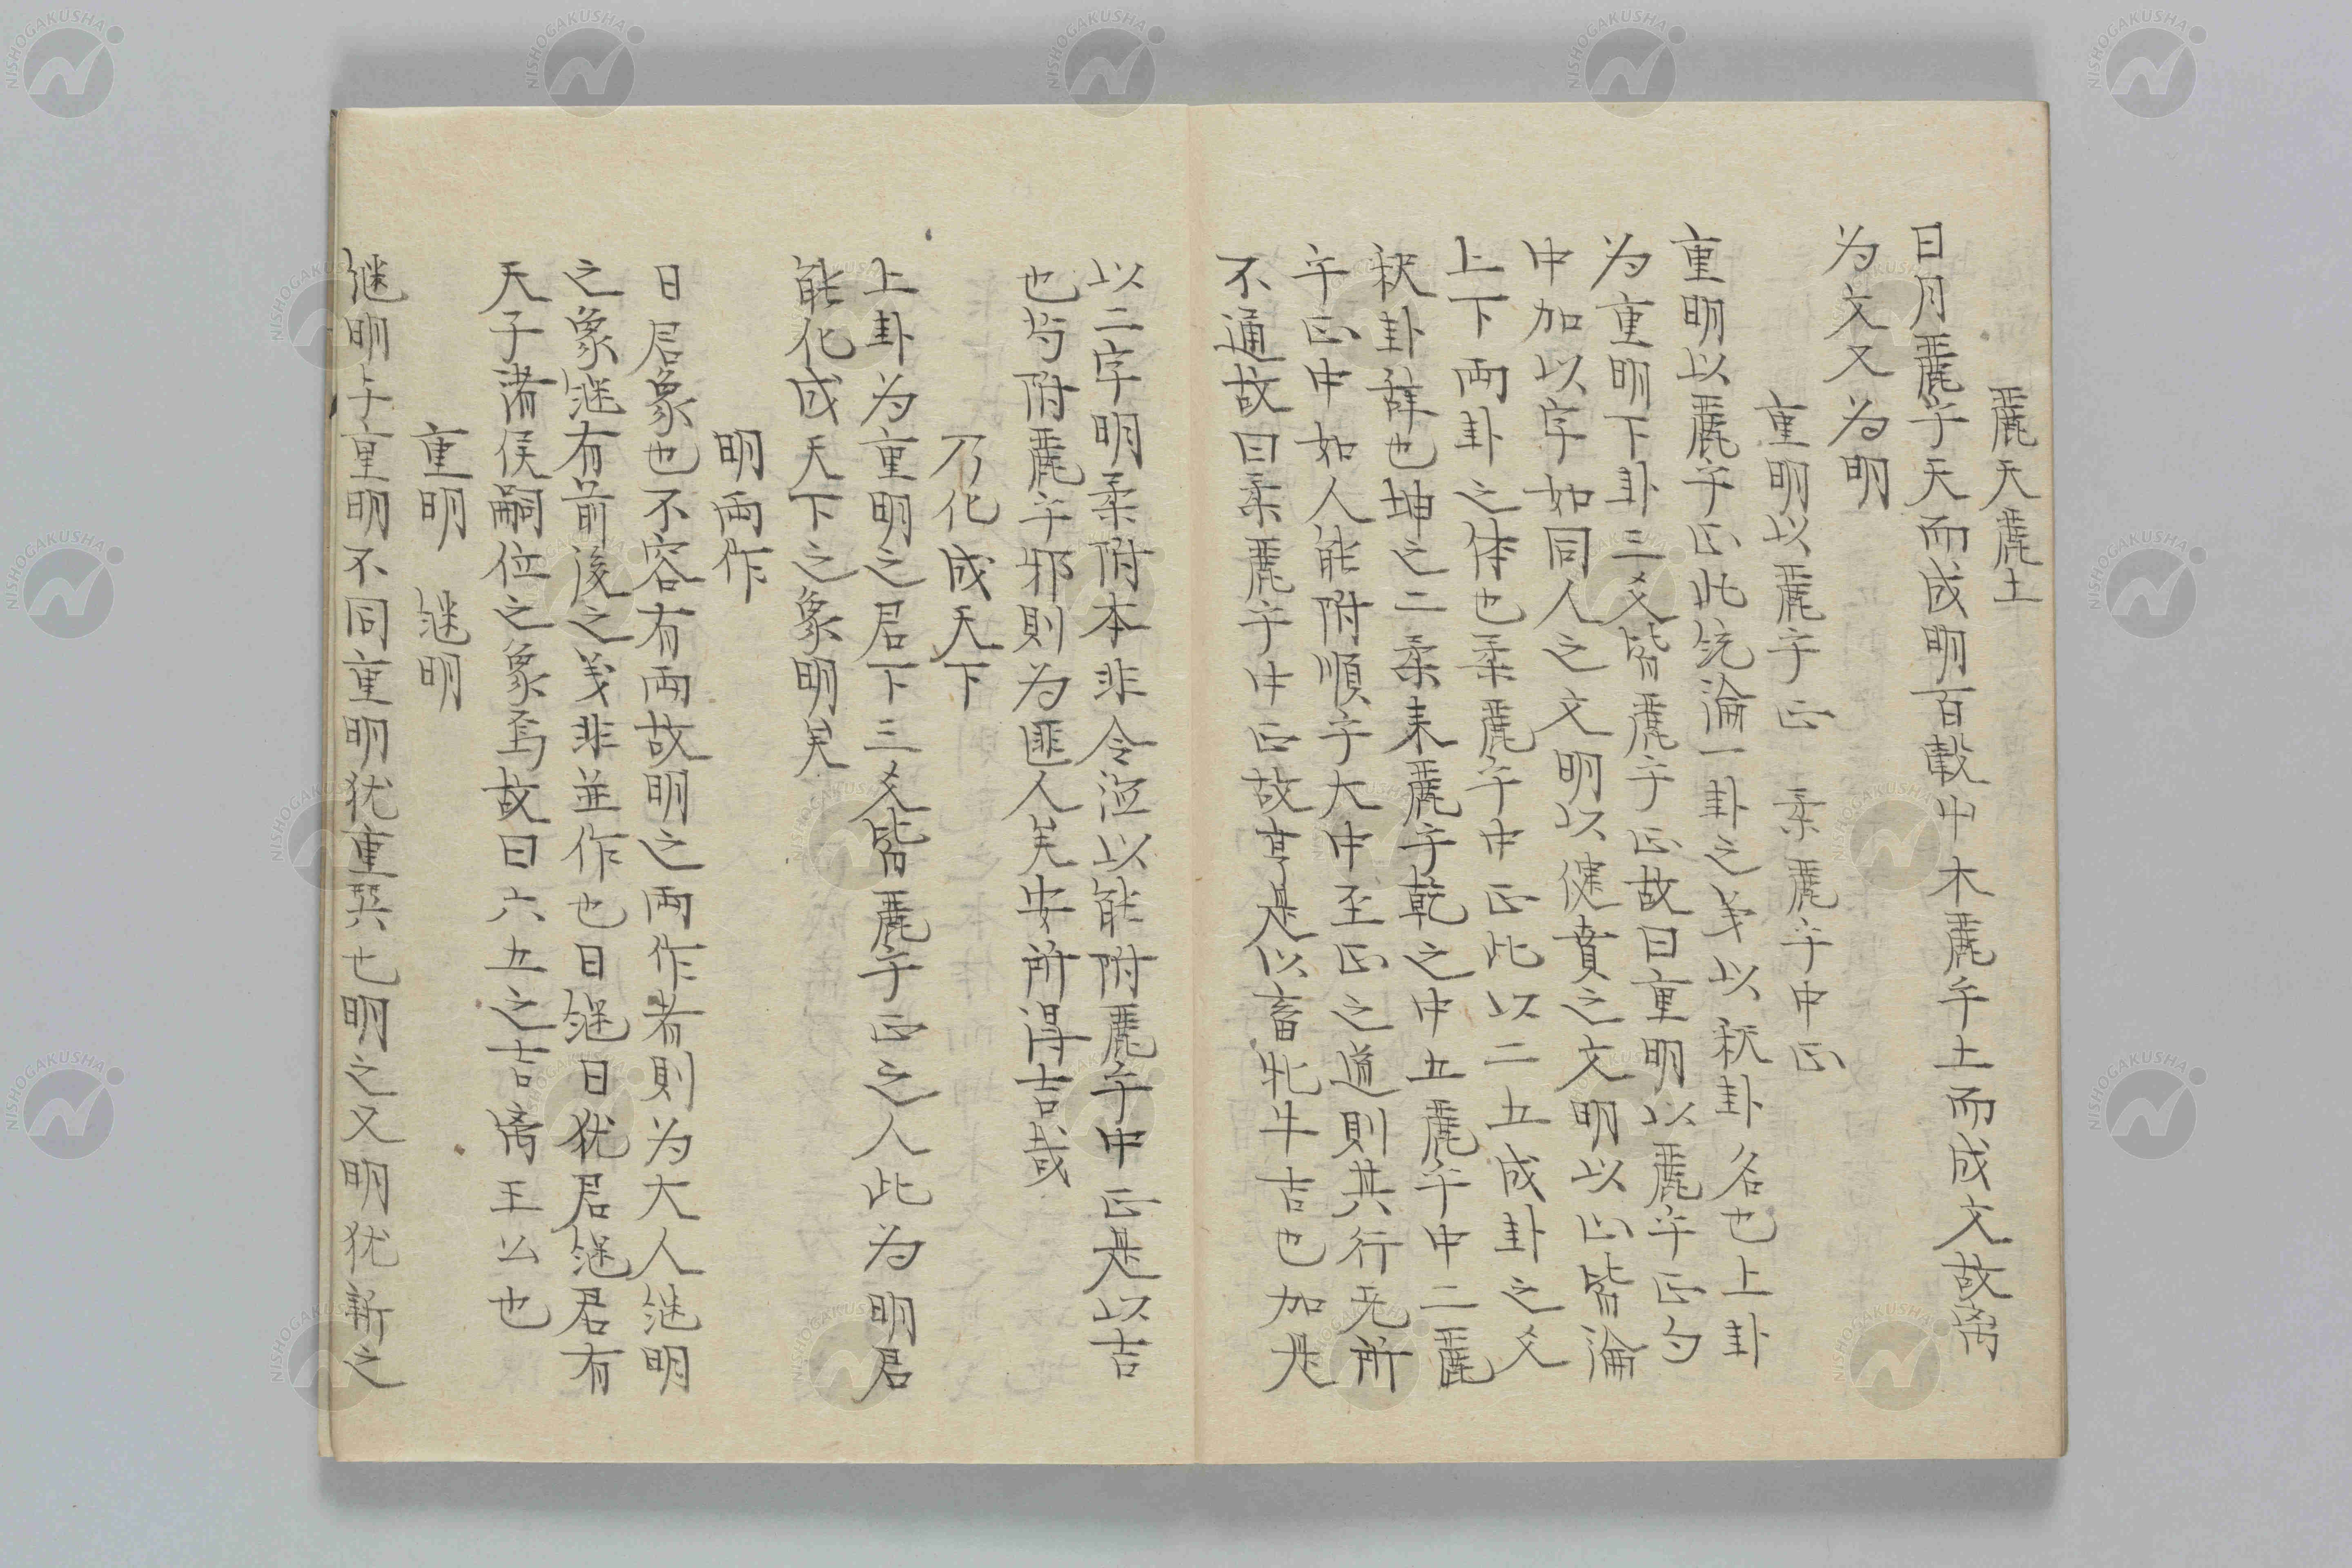 麗天麗土
日月麗乎天而成明百穀中木麗乎土而成文故离
为文又为明
重明以麗乎正 柔麗乎中正
重明以麗乎正此統論一卦之義以釈卦名也上卦
为重明下卦三爻皆麗乎正故曰重明以麗乎正句
中加以字如同人之文明以健賁之文明以止皆論
上下両卦之体也柔麗乎中正此以二五成卦之爻
釈卦辞也坤之二柔来麗乎乾之中五麗乎中二麗
乎正中如人能附順乎大中至正之道則其行无所
不通故曰柔麗乎中正故亨是以畜牝牛吉也加是
以二字明柔附本非令泣以能附麗乎中正是以吉
也若附麗乎邪則为匪人矣安所得吉哉
乃化成天下
上卦为重明之君下三爻皆麗乎正之人此为明君
能化成天下之象明矣
明両作
日君象也不容有両故明之両作者則为大人継明
之象継有前後之義非並作也日継日犹君継君有
天子諸侯嗣位之象焉故曰六五之吉离王公也
重明 継明
継明与重明不同重明犹重巽也明之又明犹新之